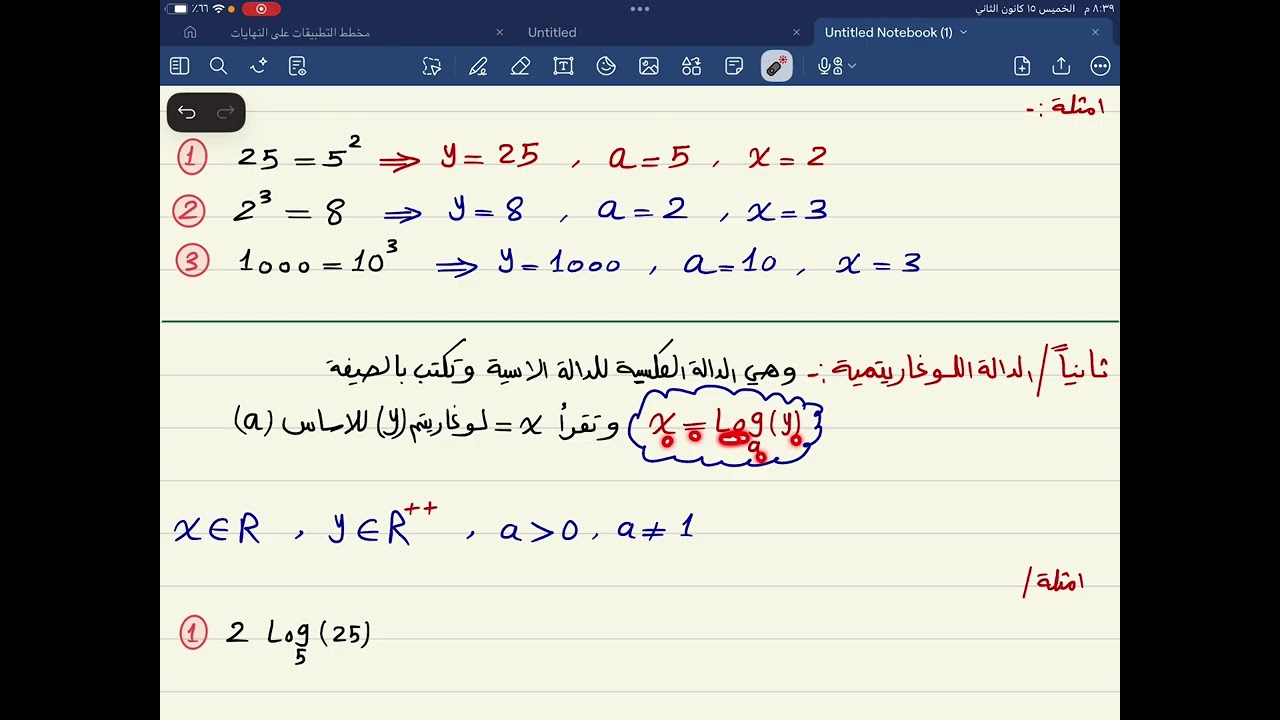 ٨:٣٩ م الخميس ١٥ كانون الثاني
٪٦٦
مخطط التطبيقات على النهايات
Untitled
Untitled Notebook (1)
امثلة :-
① 25 = 5² ⇒ y = 25 , a = 5 , x = 2
② 2³ = 8 ⇒ y = 8 , a = 2 , x = 3
③ 1000 = 10³ ⇒ y = 1000 , a = 10 , x = 3
ثانياً / الدالة اللوغاريتمية :- وهي الدالة العكسية للدالة الاسية وتكتب بالصيغة
x = Logₐ(y) وتقرأ x = لوغاريتم (y) للاساس (a)
x ∈ R , y ∈ R⁺⁺ , a > 0 , a ≠ 1
امثلة /
① 2 Log₅(25)